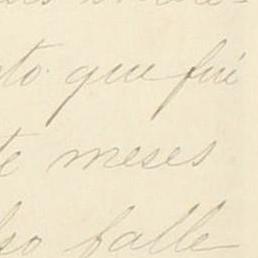 to que fui
te meses
so falle